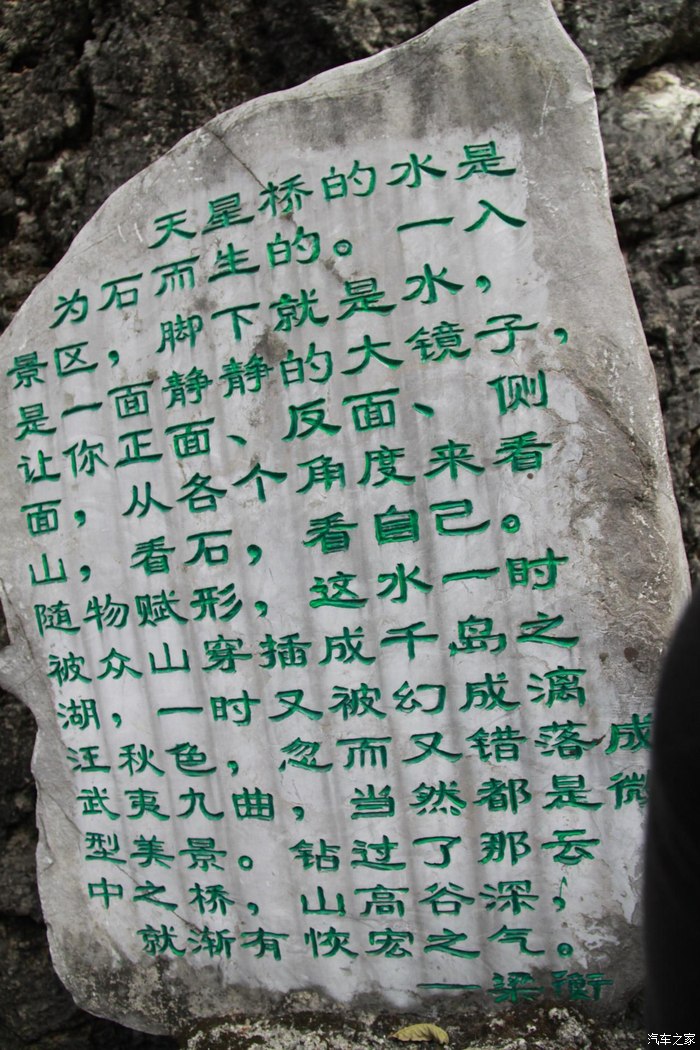 天星桥的水是
为石而生的。一入
景区，脚下就是水，
是一面静静的大镜子，
让你正面、反面、侧
面，从各个角度来看
山，看石，看自己。
随物赋形，这水一时
被众山穿插成千岛之
湖，一时又被幻成漓
江秋色，忽而又错落成
武夷九曲，当然都是微
型美景。钻过了那云
中之桥，山高谷深，
就渐有恢宏之气。
——梁衡
汽车之家